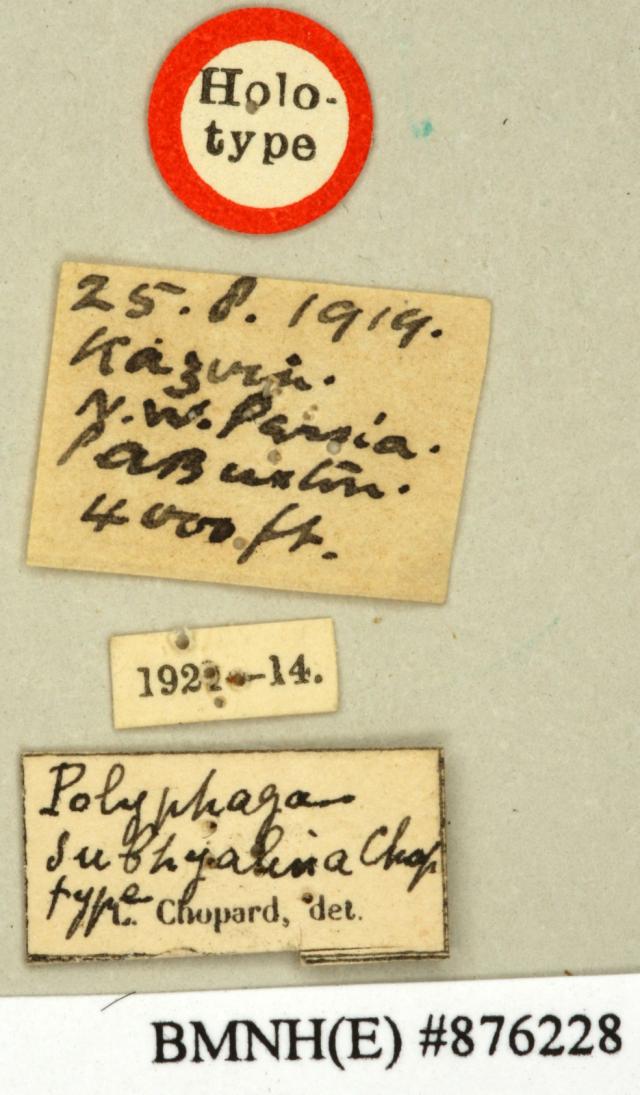 Holo-
type
25.8.1919.
Kazvin.
N.W. Persia.
PA Buxton.
4000 ft.
-14.
Polyphaga
subhyalina Chop
type
L. Chopard, det.
BMNH(E) #876228